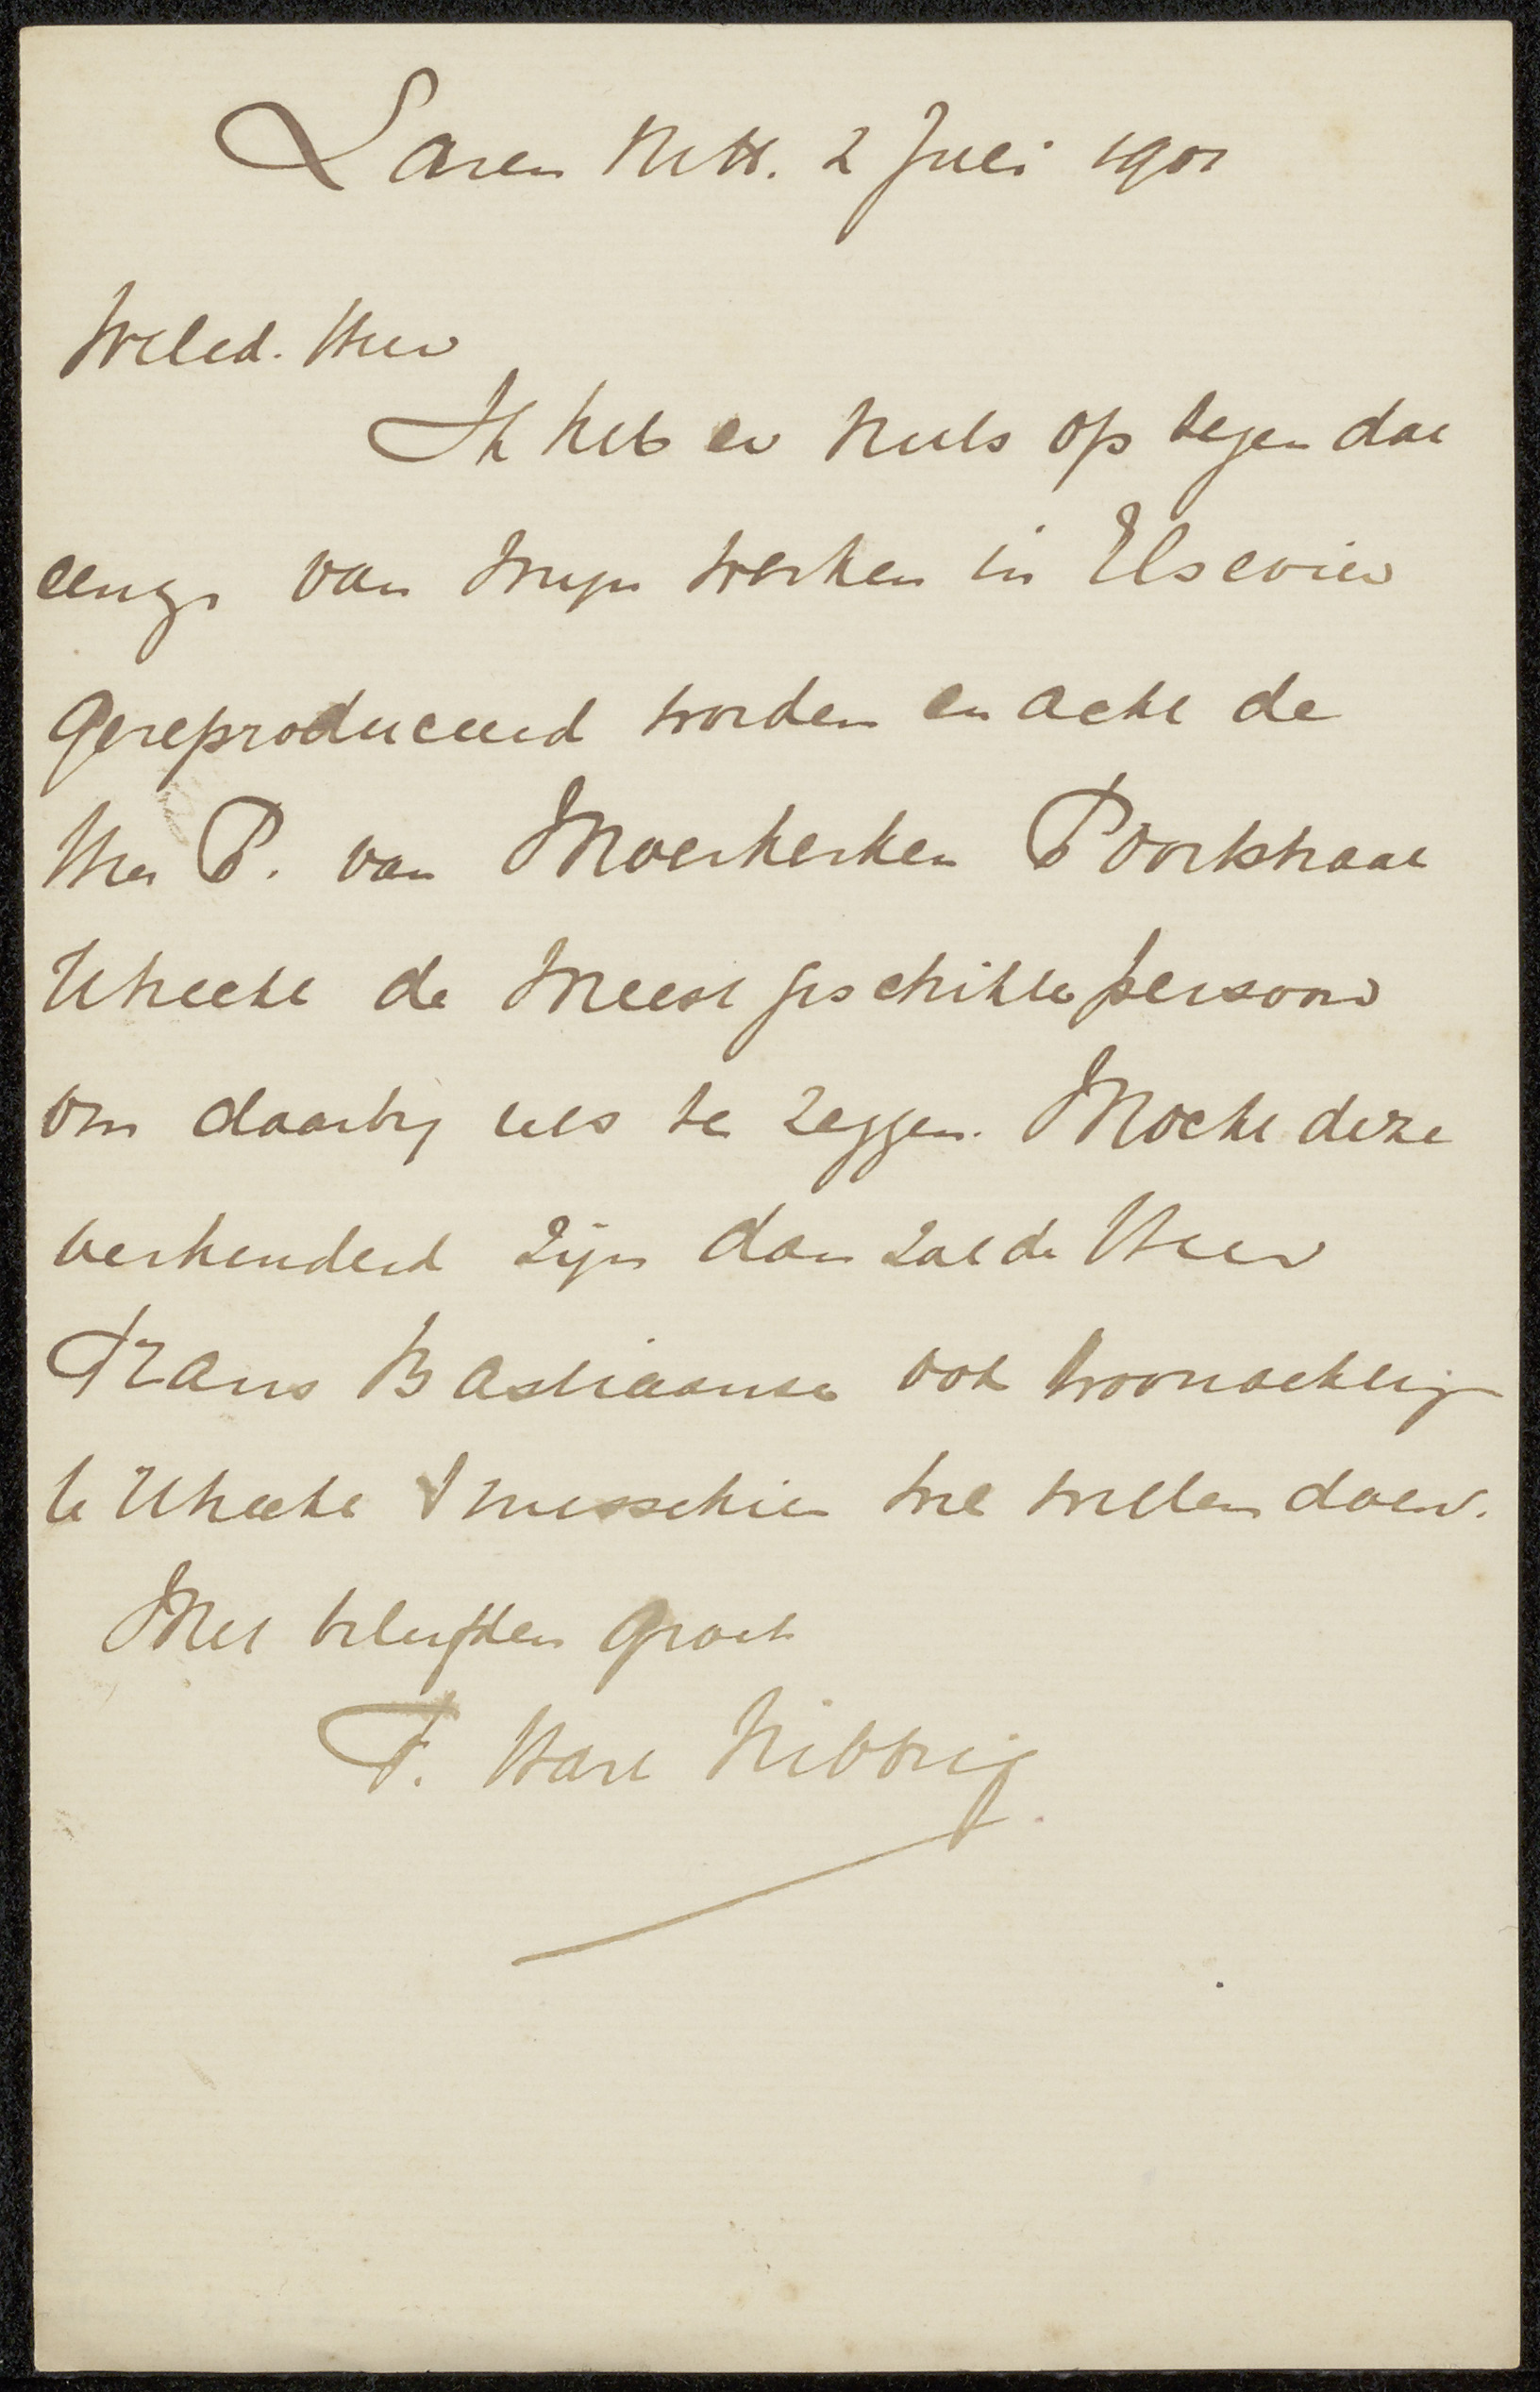 Laren N.H. 2 Juli 1901
Weled. Heer
Ik heb er niets op tegen dat
eenige van mijn werken in Elsevier
gereproduceerd worden en acht de
Heer P. van Moerkerken Poortstraat
Utrecht de meest geschikte persoon
om daarbij iets te zeggen. Mocht deze
verhinderd zijn dan zal de Heer
Frans Bastiaanse ook woonachtig
te Utrecht 't misschien wel willen doen.
Met beleefden groet
F. Hart Nibbrig